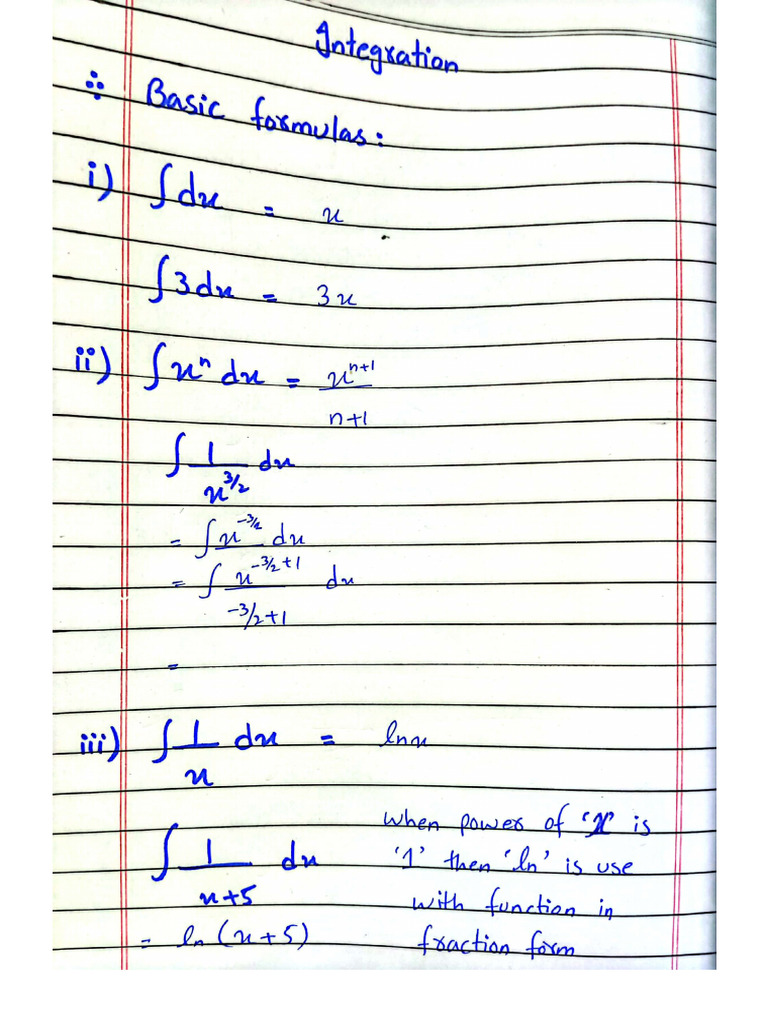 Integration
∴ Basic formulas:
i) ∫dx = x
∫3dx = 3x
ii) ∫xⁿ dx = xⁿ⁺¹/n+1
∫ 1/x^3/2 dx
= ∫x^-3/2 dx
= ∫ x^-3/2+1/-3/2+1 dx
=
iii) ∫ 1/x dx = lnx
∫ 1/x+5 dx
= ln(x+5)
When power of 'x' is
'1' then 'ln' is use
with function in
fraction form